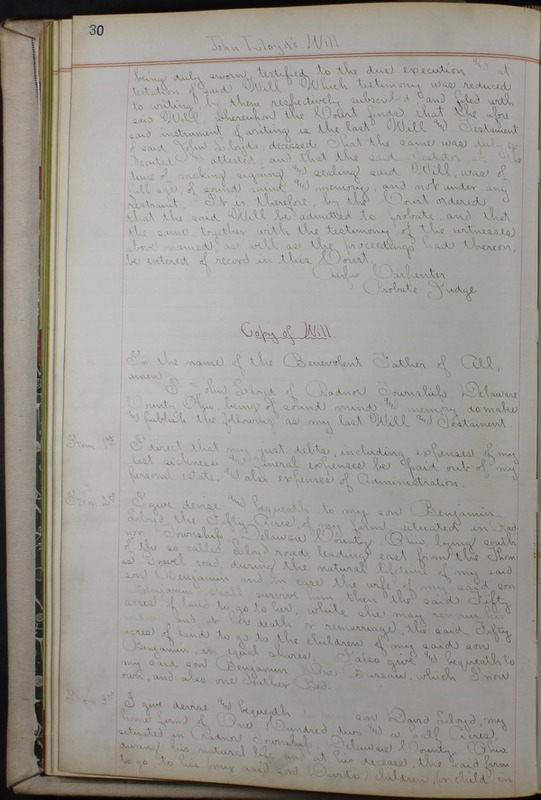 30
John Lloyd's Will
being duly sworn, testified to the due execution & at
testation of said Will. Which testimony was reduced
to writing by them respectively subscribed and filed with
said Will. Whereupon the Court finds that the afore
said instrument of writing is the last Will & Testament
of said John Lloyd, deceased. That the same was duly ex
ecuted & attested, and that the said Testator at the
time of making, signing & sealing said Will, was of
full age, of sound mind & memory, and not under any
restraint. It is, therefore, by the Court ordered
that the said Will be admitted to probate, and that
the same together with the testimony of the witnesses
above named as well as the proceedings had thereon,
be entered of record in this Court.
Carpenter
Probate Judge
Copy of Will.
In the name of the Benevolent Father of All,
amen.
I John Lloyd of Radnor Township, Delaware
County Ohio, being of sound mind & memory do make
& publish the following as my last Will & Testament.
Item 1st I direct that my just debts, including expenses of my
last sickness & funeral expenses be paid out of my
personal estate, & also expenses of Administration.
Item 2nd I give devise & bequeath to my son Benjamin
Lloyd, the Fifty Acres of my farm situated in Rad
nor Township Delaware County Ohio lying south
of the so called Lloyd road, leading east from the Thom
as road during the natural lifetime of my said
son Benjamin and in case the wife of my said son
Benjamin shall survive him, then the said Fifty
acres of land to go to her, while she may remain his
and at her death or remarriage, the said Fifty
acres of land to go to the children of my said son
Benjamin, in equal shares. I also give & bequeath to
my said son Benjamin One Bureau, which I now
own, and also one Feather Bed.
Item 3rd I give devise & bequeath son David Lloyd, my
home farm of One Hundred two & a half Acres,
situated in Radnor Township, Delaware County, Ohio
during his natural life and at his decease, the said farm
to go to his (my said son David's) children, (or child in